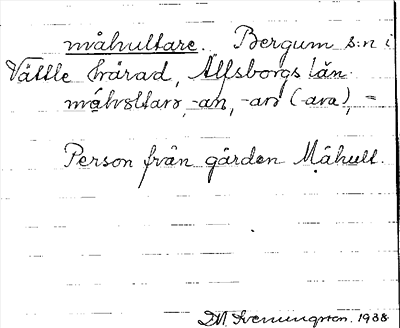 måhultare. Bergum s:n i
Vättle härad, Älfsborgs län.
måhʊltarə, -an, -arə (-ara), =
Person från gården Måhult.
1938